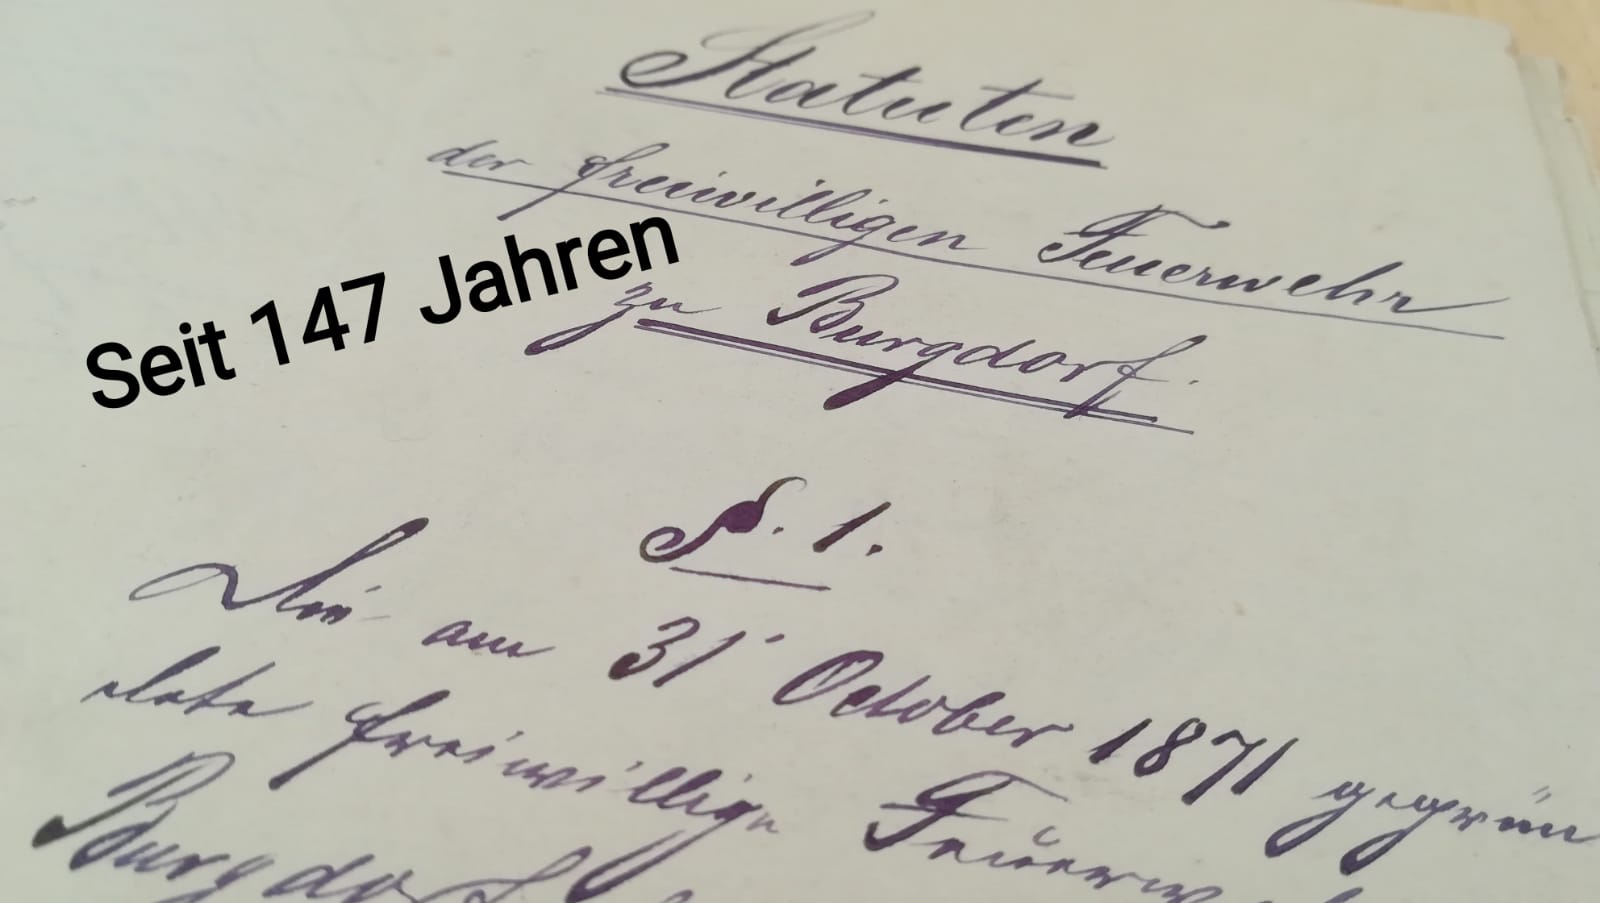 Statuten
der freiwilligen Feuerwehr
zu Burgdorf.
Seit 147 Jahren
§. 1.
Die am 31 October 1871 gegrün
dete freiwillige Feuerweh
Burgdorf